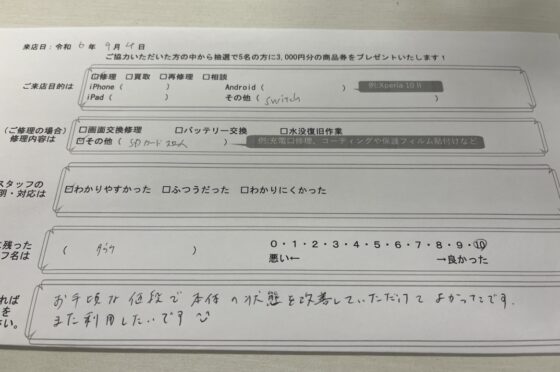 来店日：令和 6 年 9月 4日
ご協力いただいた方の中から抽選で5名の方に3,000円分の商品券をプレゼントいたします！
ご来店目的は
☑修理 □買取 □再修理 □相談
iPhone（ ） Android（ ） 例:Xperia 10 Ⅱ
iPad（ ） その他（ switch ）
（ご修理の場合）
修理内容は
□画面交換修理 □バッテリー交換 □水没復旧作業
☑その他（ SDカード ） 例:充電口修理、コーティングや保護フィルム貼付けなど
スタッフの
明・対応は
☑わかりやすかった □ふつうだった □わかりにくかった
に残った
フ名は
（ ） 0・1・2・3・4・5・6・7・8・9・10
悪い← →良かった
れば
を
さい。
お手頃な値段で本体の状態を改善していただけてよかったです.
また利用したいです